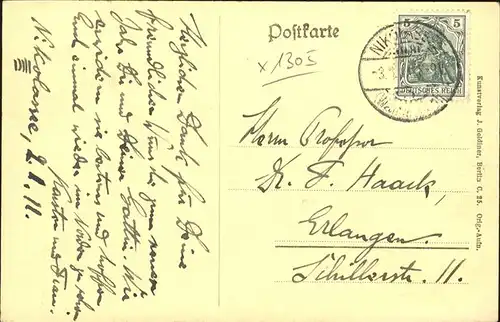 Herzlichen Dank für Deine
freundlichen Wünsche zum neuen
Jahr Dir und Deiner Gattin. Wir
erwidern sie bestens und hoffen
Euch einmal wieder im Norden zu sehen
Karsten und Frau.
Nikolassee, 2.1.11.
Postkarte
x 1305
5 5
DEUTSCHES REICH
NIKOLASSEE
Herrn Professor
Dr. F. Haack,
Erlangen.
Schillerstr. 11.
Kunstverlag J. Goldiner, Berlin C. 25. Orig.-Aufn.